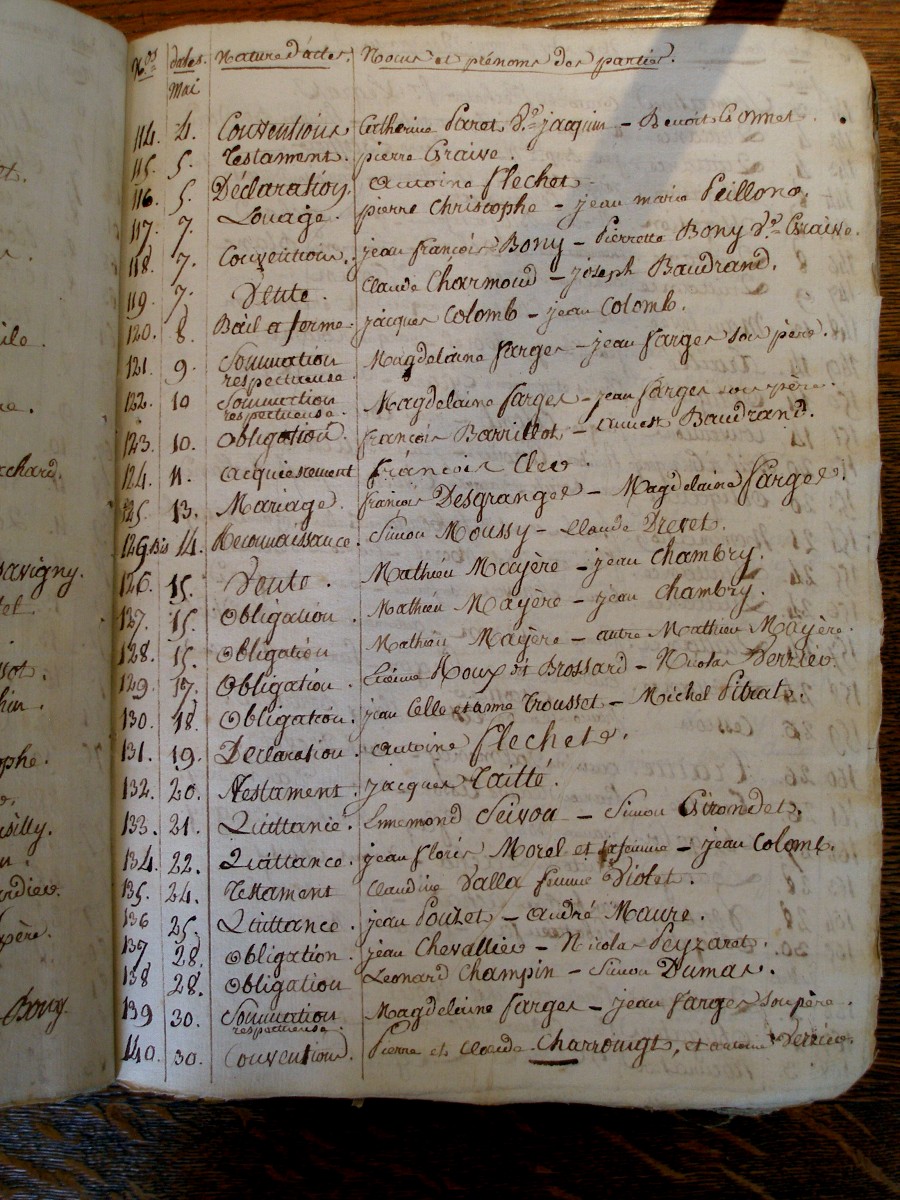 Nos dates. Nature d'actes. Noms et prénoms des parties.
Mai
114. 4. Conventions Catherine Paret Ve jacquin - Benoit Bonnet.
115. 5. Testament. pierre Graive.
116. 5. Déclaration. Antoine Flechet.
117. 7. Louage. pierre Christophe - jean marie Peillon.
118. 7. Convention. jean françois Bony - Pierrette Bony Ve Graive.
119. 7. Vente. Claude Charmond - joseph Baudrand.
120. 8. Bail a ferme. jacques Colomb - jean Colomb.
121. 9. Sommation Magdelaine Farges - jean Farges son père.
respectueuse.
122. 10 Sommation Magdelaine Farges - jean Farges son père.
respectueuse.
123. 10. Obligation. françois Barrillot - Baudrand.
124. 11. acquiescement françois Cler.
125. 13. Mariage. françois Desgranges - Magdelaine Farges.
125 bis 14. Reconnaissance. Simon Moussy - Claude Drevet.
126. 15. Vente. Mathieu Mayère - jean Chambry.
127. 15. Obligation Mathieu Mayère - jean Chambry.
128. 15. Obligation Mathieu Mayère - autre Mathieu Mayère.
129. 17. Obligation. Roux et Brossard - Nicolas Verrier.
130. 18. Obligation. jean Celle et anne Trousset - Michel Pitrat.
131. 19. Declaration. antoine Flechet.
132. 20. Testament. jacques Taitté.
133. 21. Quittance. Ennemond Seivoa - Simon Girondet.
134. 22. Quittance. jean Floris Morel et sa femme - jean Colomb.
135. 24. Testament Claudine Valla femme Violet.
136 25. Quittance. jean Pouzet - andré Maure.
137 28. Obligation. jean Chevallier - Nicolas Peyzaret.
138 28. Obligation Leonard Champin - Simon Dumas.
139 30. Sommation Magdelaine Farges - jean Farges son père.
respectueuse.
140. 30. Convention. Pierre et Claude Charrouigt, et antoine Verrier.
chard.
savigny.
père.
Bony.